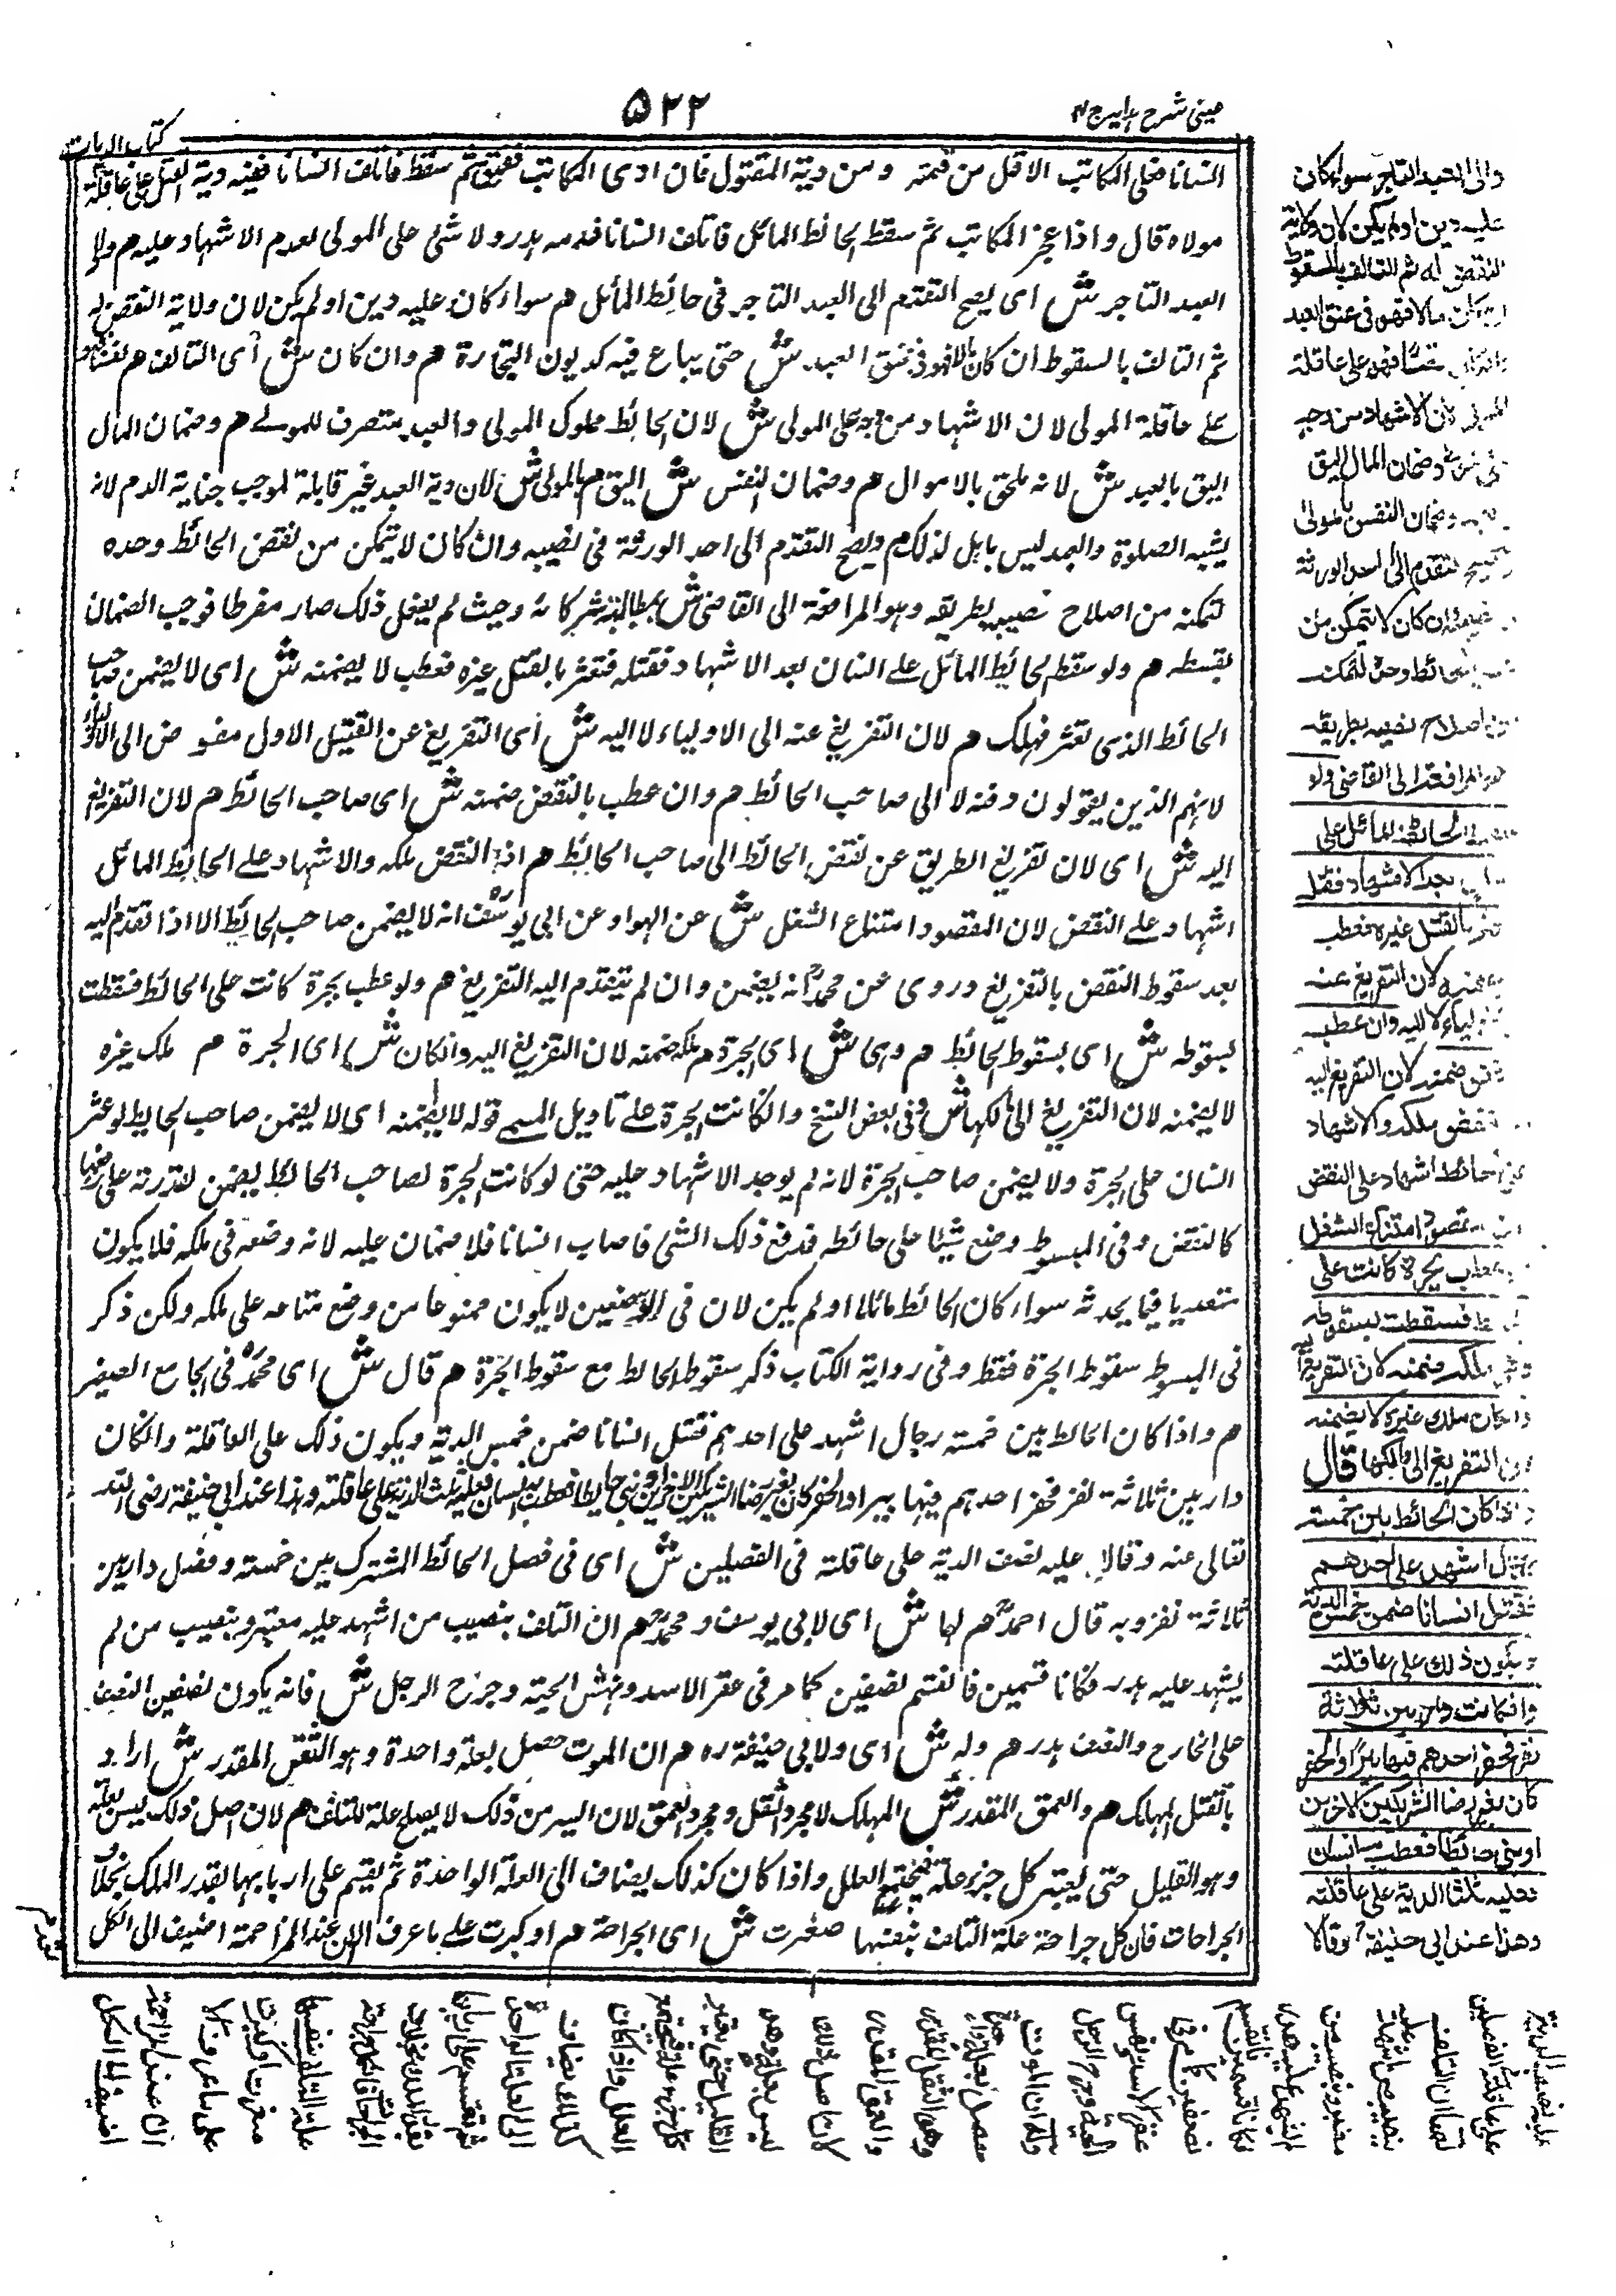 عینی شرح ہدایہ ج ۴
۵۲۲
کتاب الدیات
انسانا فعلی المکاتب الاقل من قیمتہ ومن دیۃ المقتول فان ادی المکاتب فعتق ثم سقط فاتلف انسانا ففیہ دیۃ القتل علی عاقلۃ
مولاہ قال واذا عجز المکاتب ثم سقط الحائط المائل فاتلف انسانا فدمہ ہدر ولا شئ علی المولی لعدم الاشہاد علیہ ھم والی
العبد التاجر ش ای یصح التقدم الی العبد التاجر فی حائط المائل ھم سواء کان علیہ دین اولم یکن لان ولایۃ النقض لہ
ثم التالف بالسقوط ان کان مالا فہو فی عنق العبد ش حتی یباع فیہ کدیون التجارۃ ھم وان کان ش ای التالف ھم نفسا فہو
علے عاقلۃ المولی لان الاشہاد من وجہ علی المولی ش لان الحائط مملوک المولی والعبد متصرف للمولے ھم وضمان المال
الیق بالعبد ش لانہ ملحق بالاموال ھم وضمان النفس ش الیق ھم بالمولی ش لان دیۃ العبد غیر قابلۃ لموجب جنایۃ الدم لانہ
یشبہ الصلوۃ والعبد لیس باہل لذلک ھم ویصح التقدم الی احد الورثۃ فی نصیبہ وان کان لا یتمکن من نقض الحائط وحدہ
لتمکنہ من اصلاح نصیبہ بطریقہ وہو المرافعۃ الی القاضی ش بمطالبۃ شرکائہ وحیث لم یفعل ذلک صار مفرطا فوجب الضمان
بقسطہ ھم ولو سقط الحائط المائل علے انسان بعد الاشہاد فقتلہ فتعثر بالقتیل غیرہ فعطب لا یضمنہ ش ای لا یضمن صاحب
الحائط الذی تعثر فہلک ھم لان التفریغ عنہ الی الاولیاء لا الیہ ش ای التفریغ عن القتیل الاول مفوض الی الاولیاء
لانہم الذین یقولون دفنہ لا الی صاحب الحائط ھم وان عطب بالنقض ضمنہ ش ای صاحب الحائط ھم لان التفریغ
الیہ ش ای لان تفریغ الطریق عن نقض الحائط الی صاحب الحائط ھم اذ النقض ملکہ والاشہاد علے الحائط المائل
اشہاد علے النقض لان المقصود امتناع الشغل ش عن الہواء وعن ابی یوسف انہ لا یضمن صاحب الحائط الا اذا تقدم الیہ
بعد سقوط النقض بالتفریغ وروی عن محمد انہ یضمن وان لم یتقدم الیہ التفریغ ھم ولو عطب بجرۃ کانت علی الحائط فسقطت
بسقوطہ ش ای بسقوط الحائط ھم وہی ش ای الجرۃ ھم ملکہ ضمنہ لان التفریغ الیہ وان کان ش ای الجرۃ ھم ملک غیرہ
لا یضمنہ لان التفریغ الی مالکہا ش وفی بعض النسخ وان کانت الجرۃ علے تاویل المسمے قولہ لا یضمنہ ای لا یضمن صاحب الحائط لو عثر
انسان علی الجرۃ ولا یضمن صاحب الجرۃ لانہ لم یوجد الاشہاد علیہ حتی لو کانت الجرۃ لصاحب الحائط یضمن لقدرتہ علی رفعہا
کالنقض وفی المبسوط وضع شیئا علی حائطہ فدفع ذلک الشئ فاصاب انسانا فلا ضمان علیہ لانہ وضعہ فی ملکہ فلا یکون
متعدیا فیما یحدثہ سواء کان الحائط مائلا اولم یکن لان فی الوضعین لا یکون ممنوعا من وضع متاعہ علی ملکہ ولکن ذکر
فی المبسوط سقوط الجرۃ فقط وفی روایۃ الکتاب ذکر سقوط الحائط مع سقوط الجرۃ ھم قال ش ای محمد فی الجامع الصغیر
ھم واذا کان الحائط بین خمسۃ رجال اشہد علی احدہم فقتل انسانا ضمن خمس الدیۃ ویکون ذلک علی العاقلۃ وان کان
دار بین ثلاثۃ نفر فحفر احدہم فیہا بیرا والحفر کان بغیر رضا الشریکین الآخرین او بنی حائطا فعطب بہ انسان فعلیہ ثلثا الدیۃ علی عاقلتہ وہذا عند ابی حنیفۃ رضی اللہ
تعالی عنہ وقالا علیہ نصف الدیۃ علی عاقلتہ فی الفصلین ش ای فی فصل الحائط المشترک بین خمسۃ وفصل دار بین
ثلاثۃ نفر وبہ قال احمد ھم لہما ش ای لابی یوسف ومحمد ھم ان التلف بنصیب من اشہد علیہ معتبر وبنصیب من لم
یشہد علیہ ہدر فکانا قسمین فانقسم نصفین کما مر فی عقر الاسد ونہش الحیۃ وجرح الرجل ش فانہ یکون نصفین النصف
علی الجارح والنصف ہدر ھم ولہ ش ای ولابی حنیفۃ رہ ھم ان الموت حصل بعلۃ واحدۃ وہو الثقل المقدر ش اراد
بالثقل المہلک ھم والعمق المقدر ش المہلک لا مجرد الثقل ومجرد العمق لان الیسیر من ذلک لا یصلح علۃ للتلف ھم لان اصل ذلک لیس بعلۃ
وہو القلیل حتی یعتبر کل جزء علۃ فتجتمع العلل واذا کان کذلک یضاف الی العلۃ الواحدۃ ثم یقسم علی اربابہا بقدر الملک بخلاف
الجراحات فان کل جراحۃ علۃ التلف بنفسہا صغرت ش ای الجراحۃ ھم او کبرت علے ما عرف الا ان عند المزاحمۃ اضیف الی الکل
والی العبد التاجر سواء کان
علیہ دین اولم یکن لان ولایۃ
النقض لہ ثم التالف بالسقوط
مالا فهو فی عنق العبد
نفسا فهو علی عاقلۃ
لان الاشهاد من وجہ
وضمان المال الیق
وضمان النفس بالمولی
التقدم الی احد الورثۃ
وان کان لا یتمکن من
الحائط وحدہ لتمکنہ
من اصلاح نصیبہ بطریقہ
المرافعۃ الی القاضی ولو
الحائط المائل علی
بعد الاشهاد فقتل
بالقتیل غیرہ فعطب
لان التفریغ عنہ
لا الیہ وان عطب
ضمنہ لان التفریغ الیہ
النقض ملکہ والاشهاد
الحائط اشهاد علی النقض
امتناع الشغل
عطب بجرۃ کانت علی
فسقطت بسقوطہ
ملکہ ضمنہ لان التفریغ
وان کان ملک غیرہ لا یضمنہ
لان التفریغ الی مالکها قال
واذا کان الحائط بین خمسۃ
رجال اشهد علی احدهم
فقتل انسانا ضمن خمس الدیۃ
ویکون ذلک علی عاقلتہ
وان کانت دار بین ثلاثۃ
نفر فحفر احدهم فیها بئرا والحفر
کان بغیر رضا الشریکین الاخرین
او بنی حائطا فعطب بہ انسان
فعلیہ ثلثا الدیۃ علی عاقلتہ
وهذا عند ابی حنیفۃ وقالا
علیہ نصف الدیۃ
علی عاقلتہ فی الفصلین
لهما ان التلف
بنصیب من اشهد علیہ
معتبر وبنصیب من
لم یشهد علیہ هدر
فکانا قسمین فانقسم
نصفین کما مر فی
عقر الاسد ونهش
الحیۃ وجرح الرجل
ولہ ان الموت
حصل بعلۃ واحدۃ
وهو الثقل المقدر
والعمق المقدر
لان اصل ذلک
لیس بعلۃ وهو
القلیل حتی یعتبر
کل جزء علۃ فتجتمع
العلل واذا کان
کذلک یضاف
الی العلۃ الواحدۃ
ثم یقسم علی اربابها
بقدر الملک بخلاف
الجراحات فان کل جراحۃ
علۃ التلف بنفسها
صغرت او کبرت
علی ما عرف الا
ان عند المزاحمۃ
اضیف الی الکل